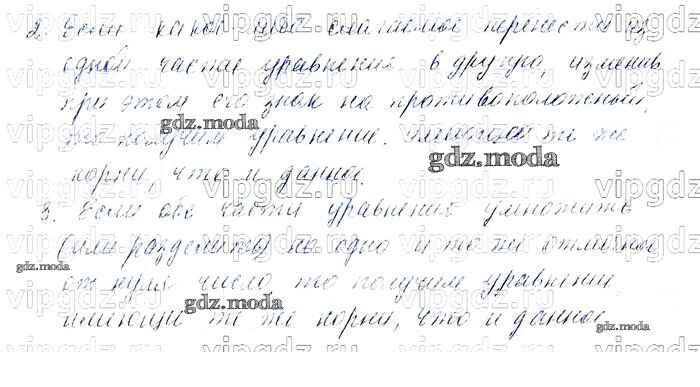 2. Если какое-либо слагаемое перенести из
одной части уравнения в другую, изменив
при этом его знак на противоположный,
то получим уравнение, имеющее те же
корни, что и данное.
3. Если обе части уравнения умножить
(или разделить) на одно и то же отличное
от нуля число, то получим уравнение,
имеющее те же корни, что и данное.
gdz.moda
gdz.moda
gdz.moda
gdz.moda
gdz.moda